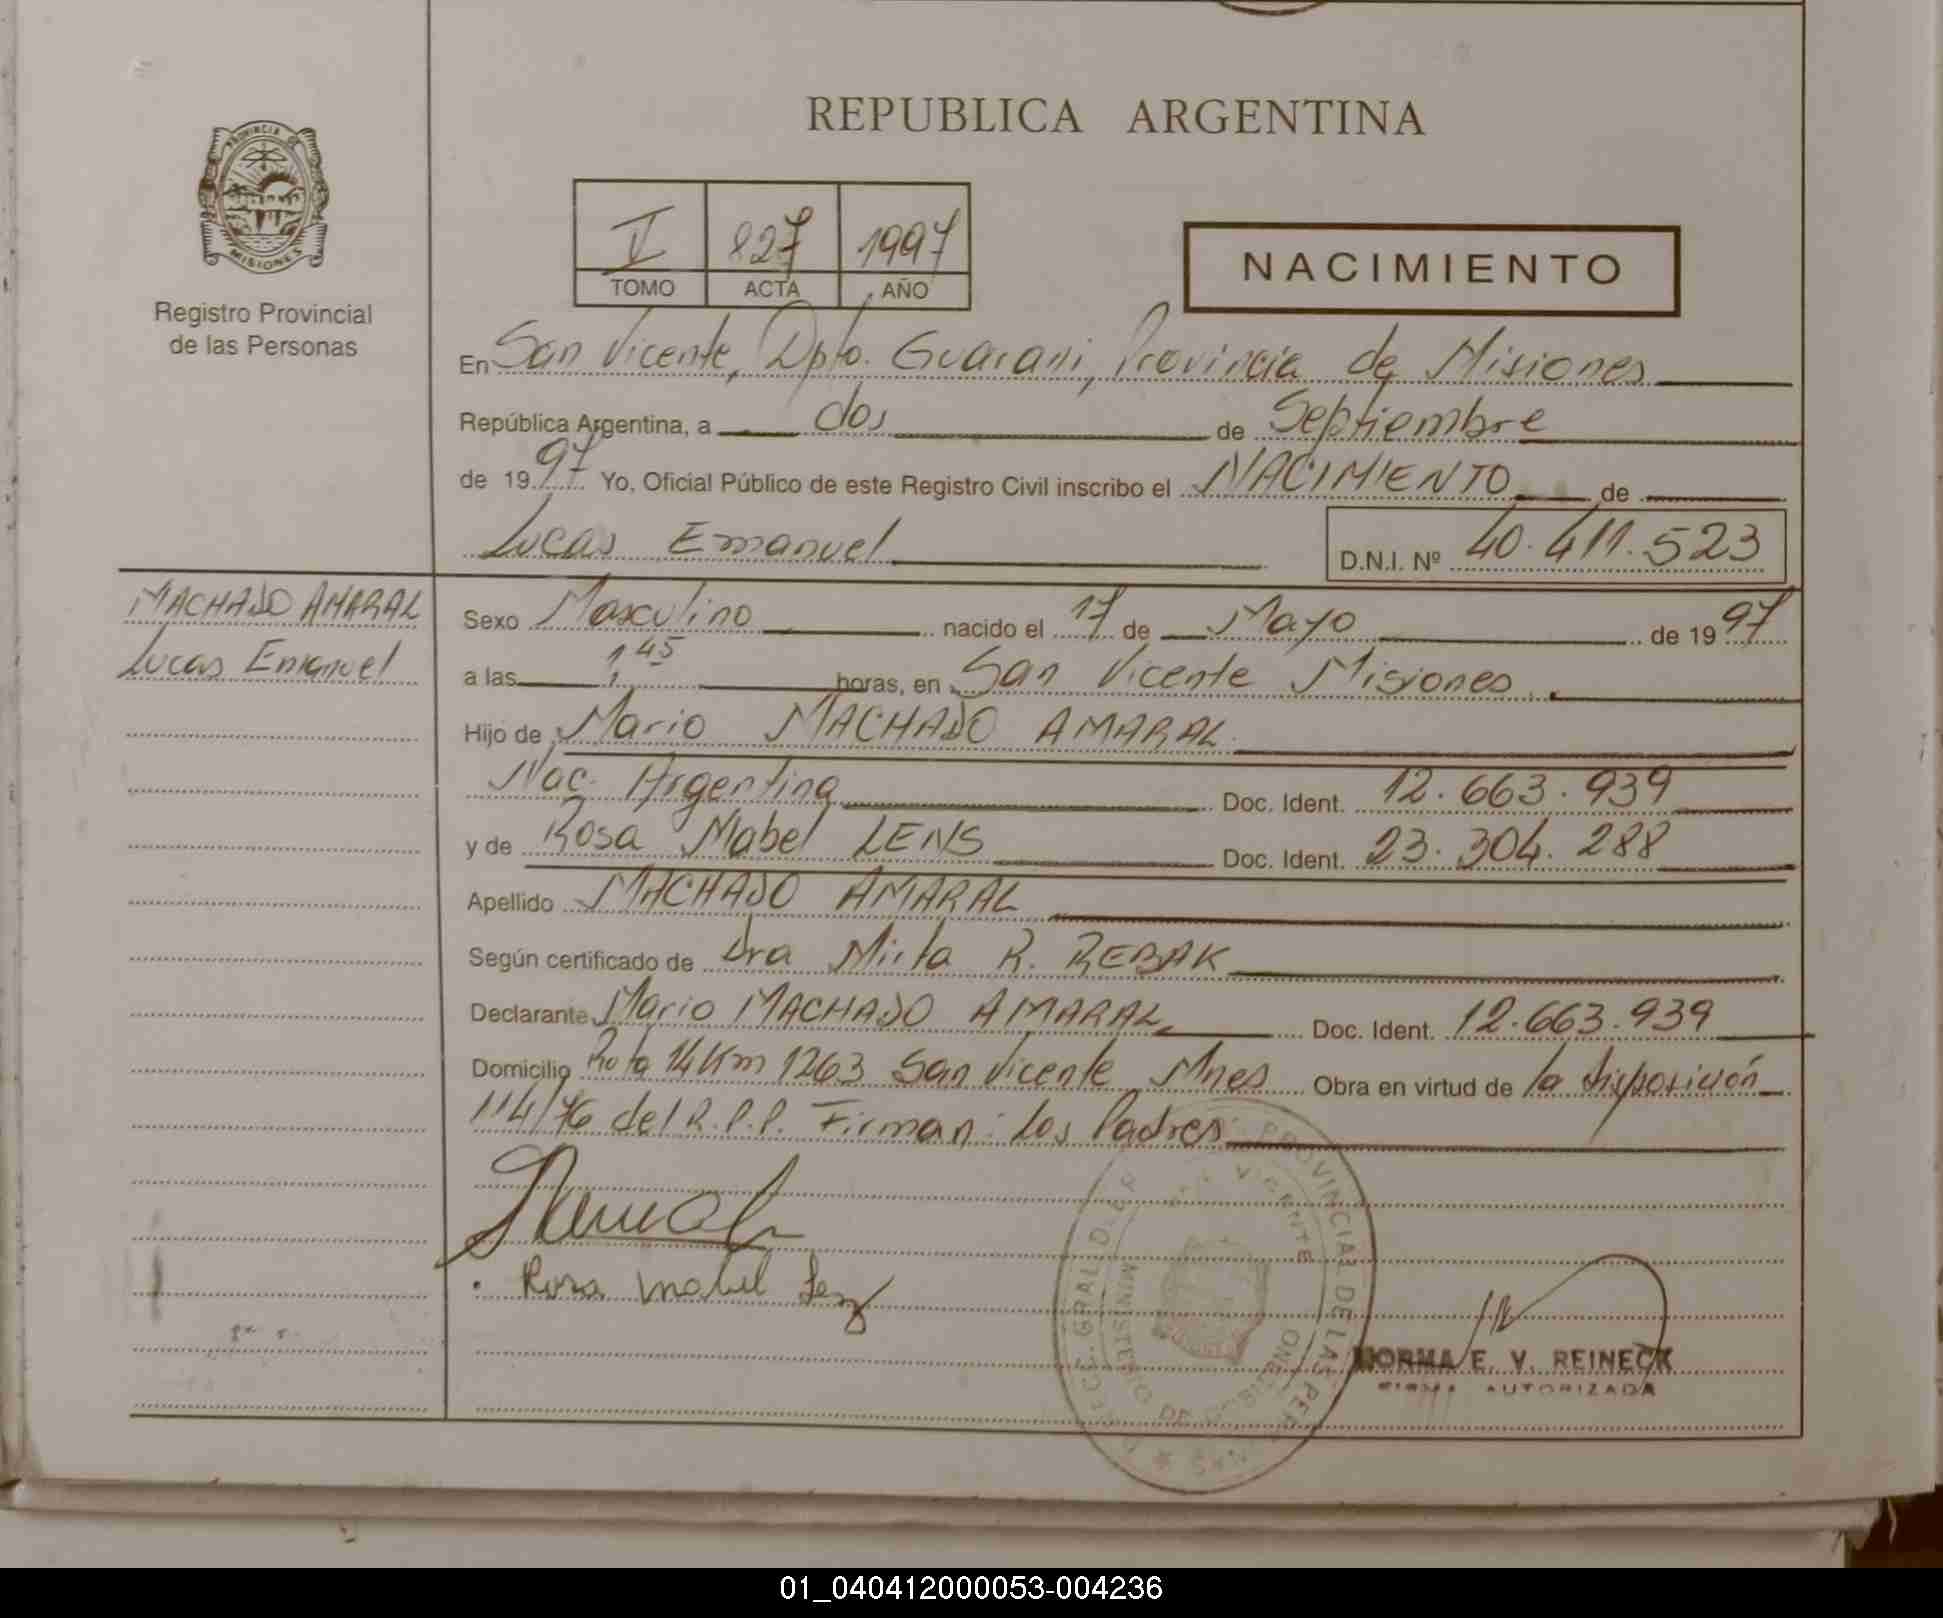 REPUBLICA ARGENTINA
PROVINCIA DE
MISIONES
Registro Provincial
de las Personas
V 827 1997
TOMO ACTA AÑO
NACIMIENTO
En San Vicente, Dpto. Guarani, Provincia de Misiones
República Argentina, a dos de Septiembre
de 1997 Yo, Oficial Público de este Registro Civil inscribo el NACIMIENTO de
Lucas Emanuel D.N.I. Nº 40.411.523
MACHADO AMARAL
Lucas Emanuel
Sexo Masculino nacido el 17 de Mayo de 1997
a las 1 45 horas, en San Vicente Misiones.
Hijo de Mario MACHADO AMARAL
Nac. Argentina Doc. Ident. 12.663.939
y de Rosa Mabel LENS Doc. Ident. 23.304.288
Apellido MACHADO AMARAL
Según certificado de Dra Mirta R. REBAK
Declarante Mario MACHADO AMARAL Doc. Ident. 12.663.939
Domicilio Ruta 14 Km 1263 San Vicente Mnes Obra en virtud de la disposición
114/76 del R.P.P. Firman: Los Padres
Rosa Mabel Lenz
PROVINCIAL DE LAS PERSONAS
VICENTE
MINISTERIO DE GOBIERNO
NORMA E. V. REINECK
FIRMA AUTORIZADA
01_040412000053-004236